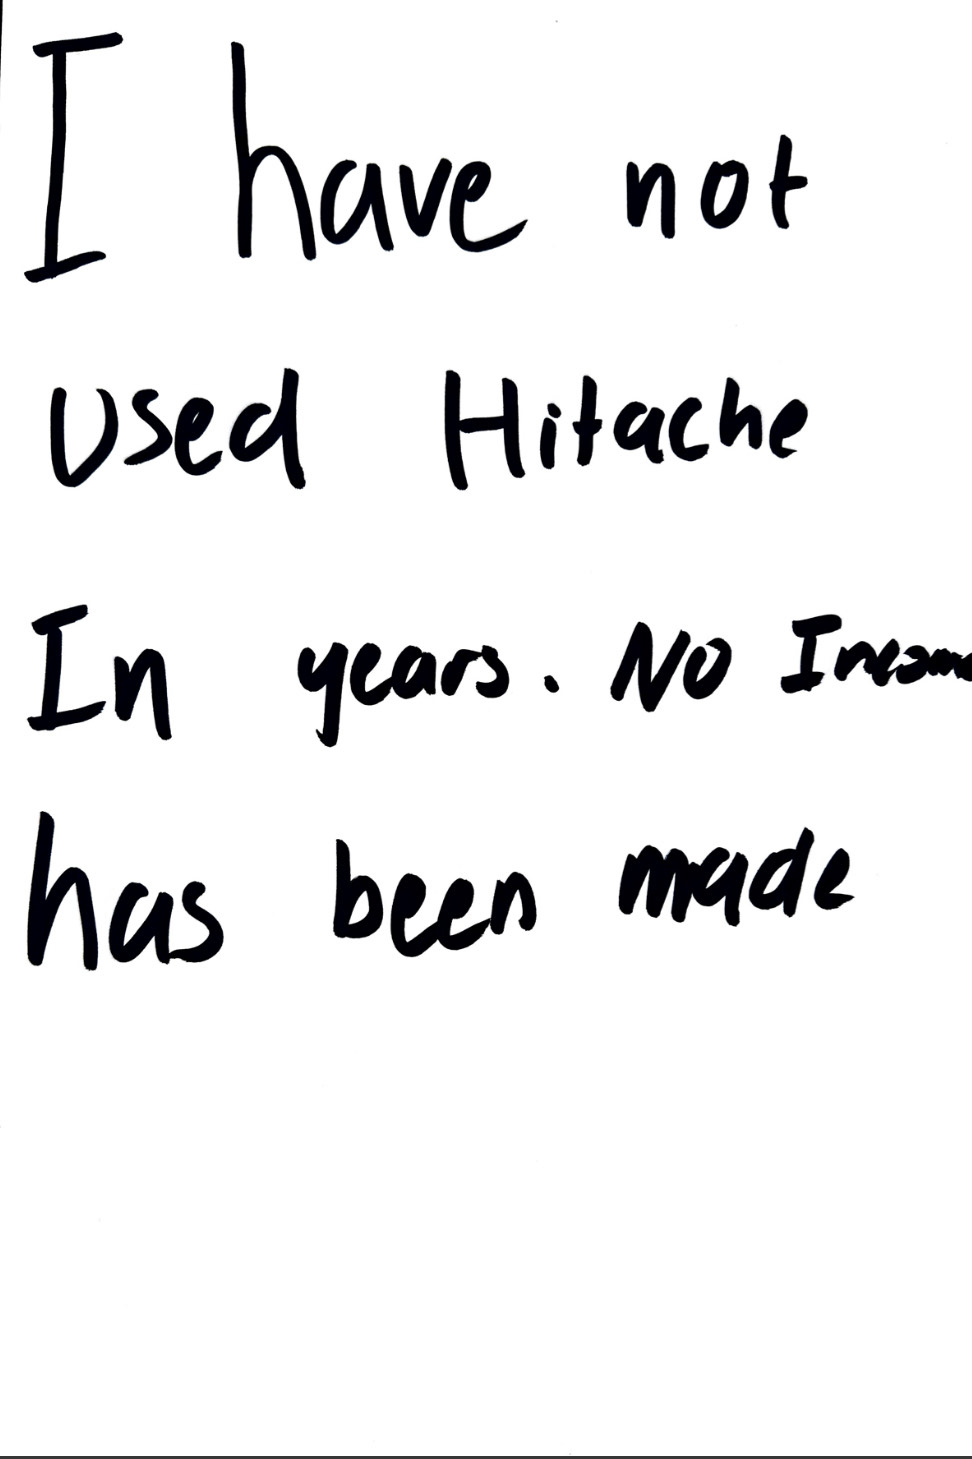 I have not
Used Hitache
In years. No Income
has been made